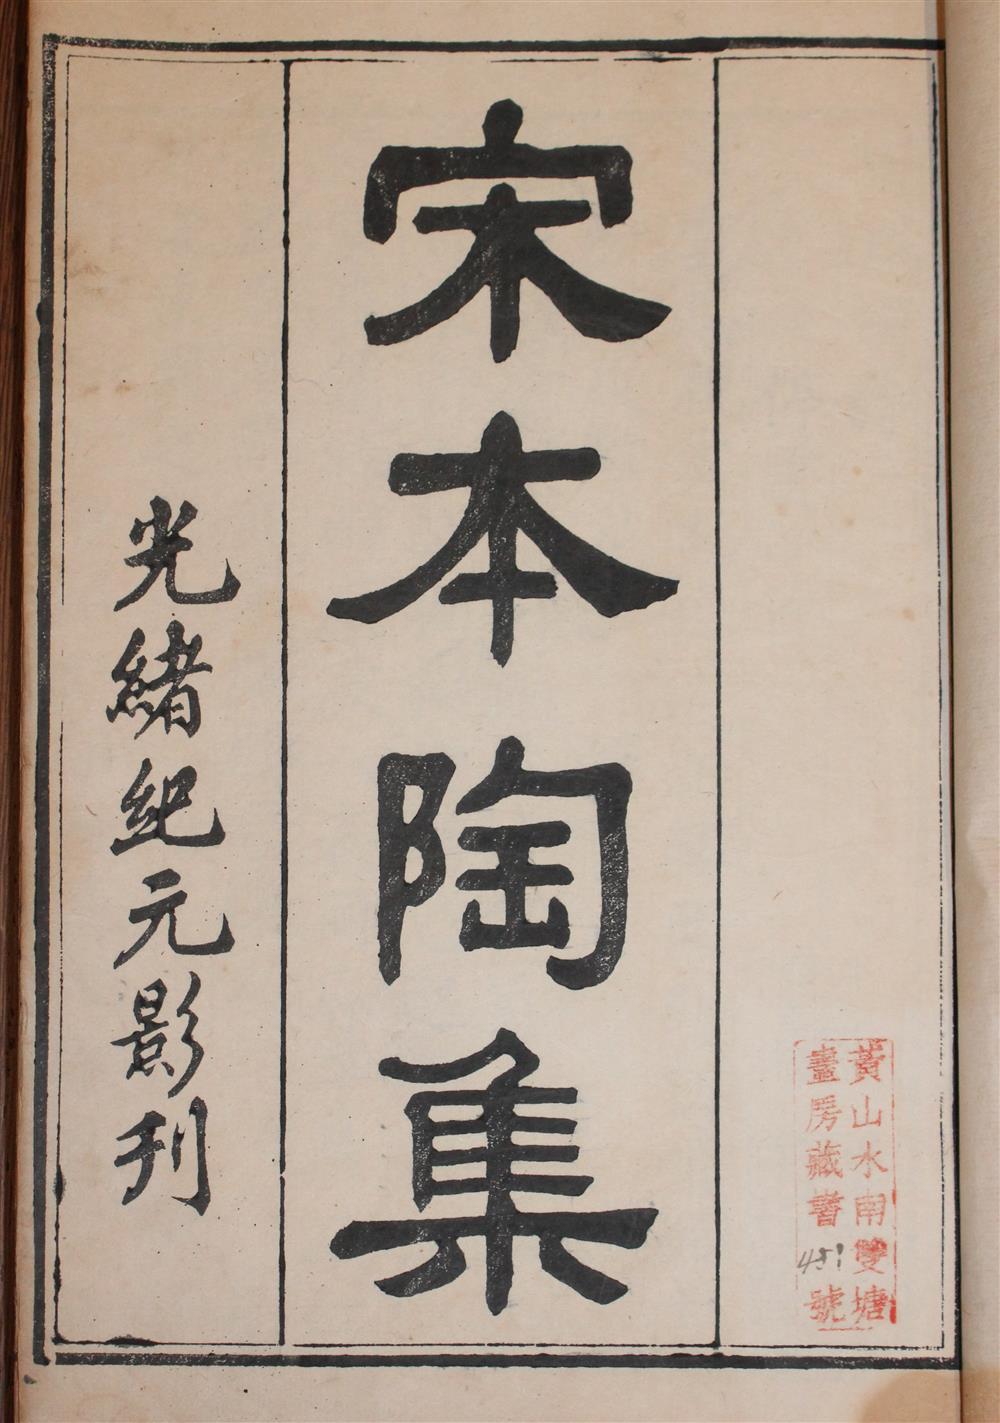 宋本陶集
光緒紀元影刊
黃山水南雙塘
畫房藏書451號